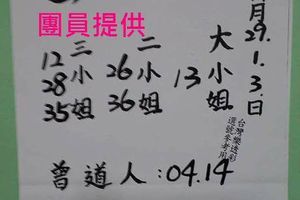 團員提供
月29.1.3.日
大小姐 13
二小姐 26 36
三小姐 12 28 35
台灣樂透彩
選號參考用
曾道人:04.14